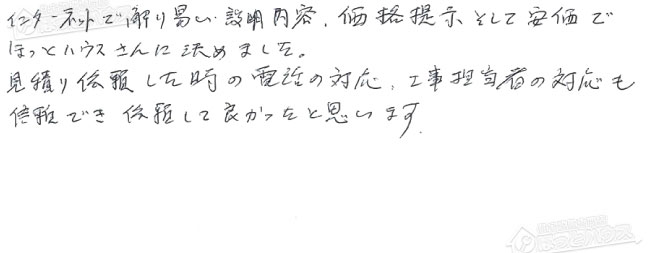 インターネットで解り易い説明内容、価格提示そして安価で
ほっとハウスさんに決めました。
見積り依頼した時の電話の対応、工事担当者の対応も
信頼でき依頼して良かったと思います。
ほっとハウス